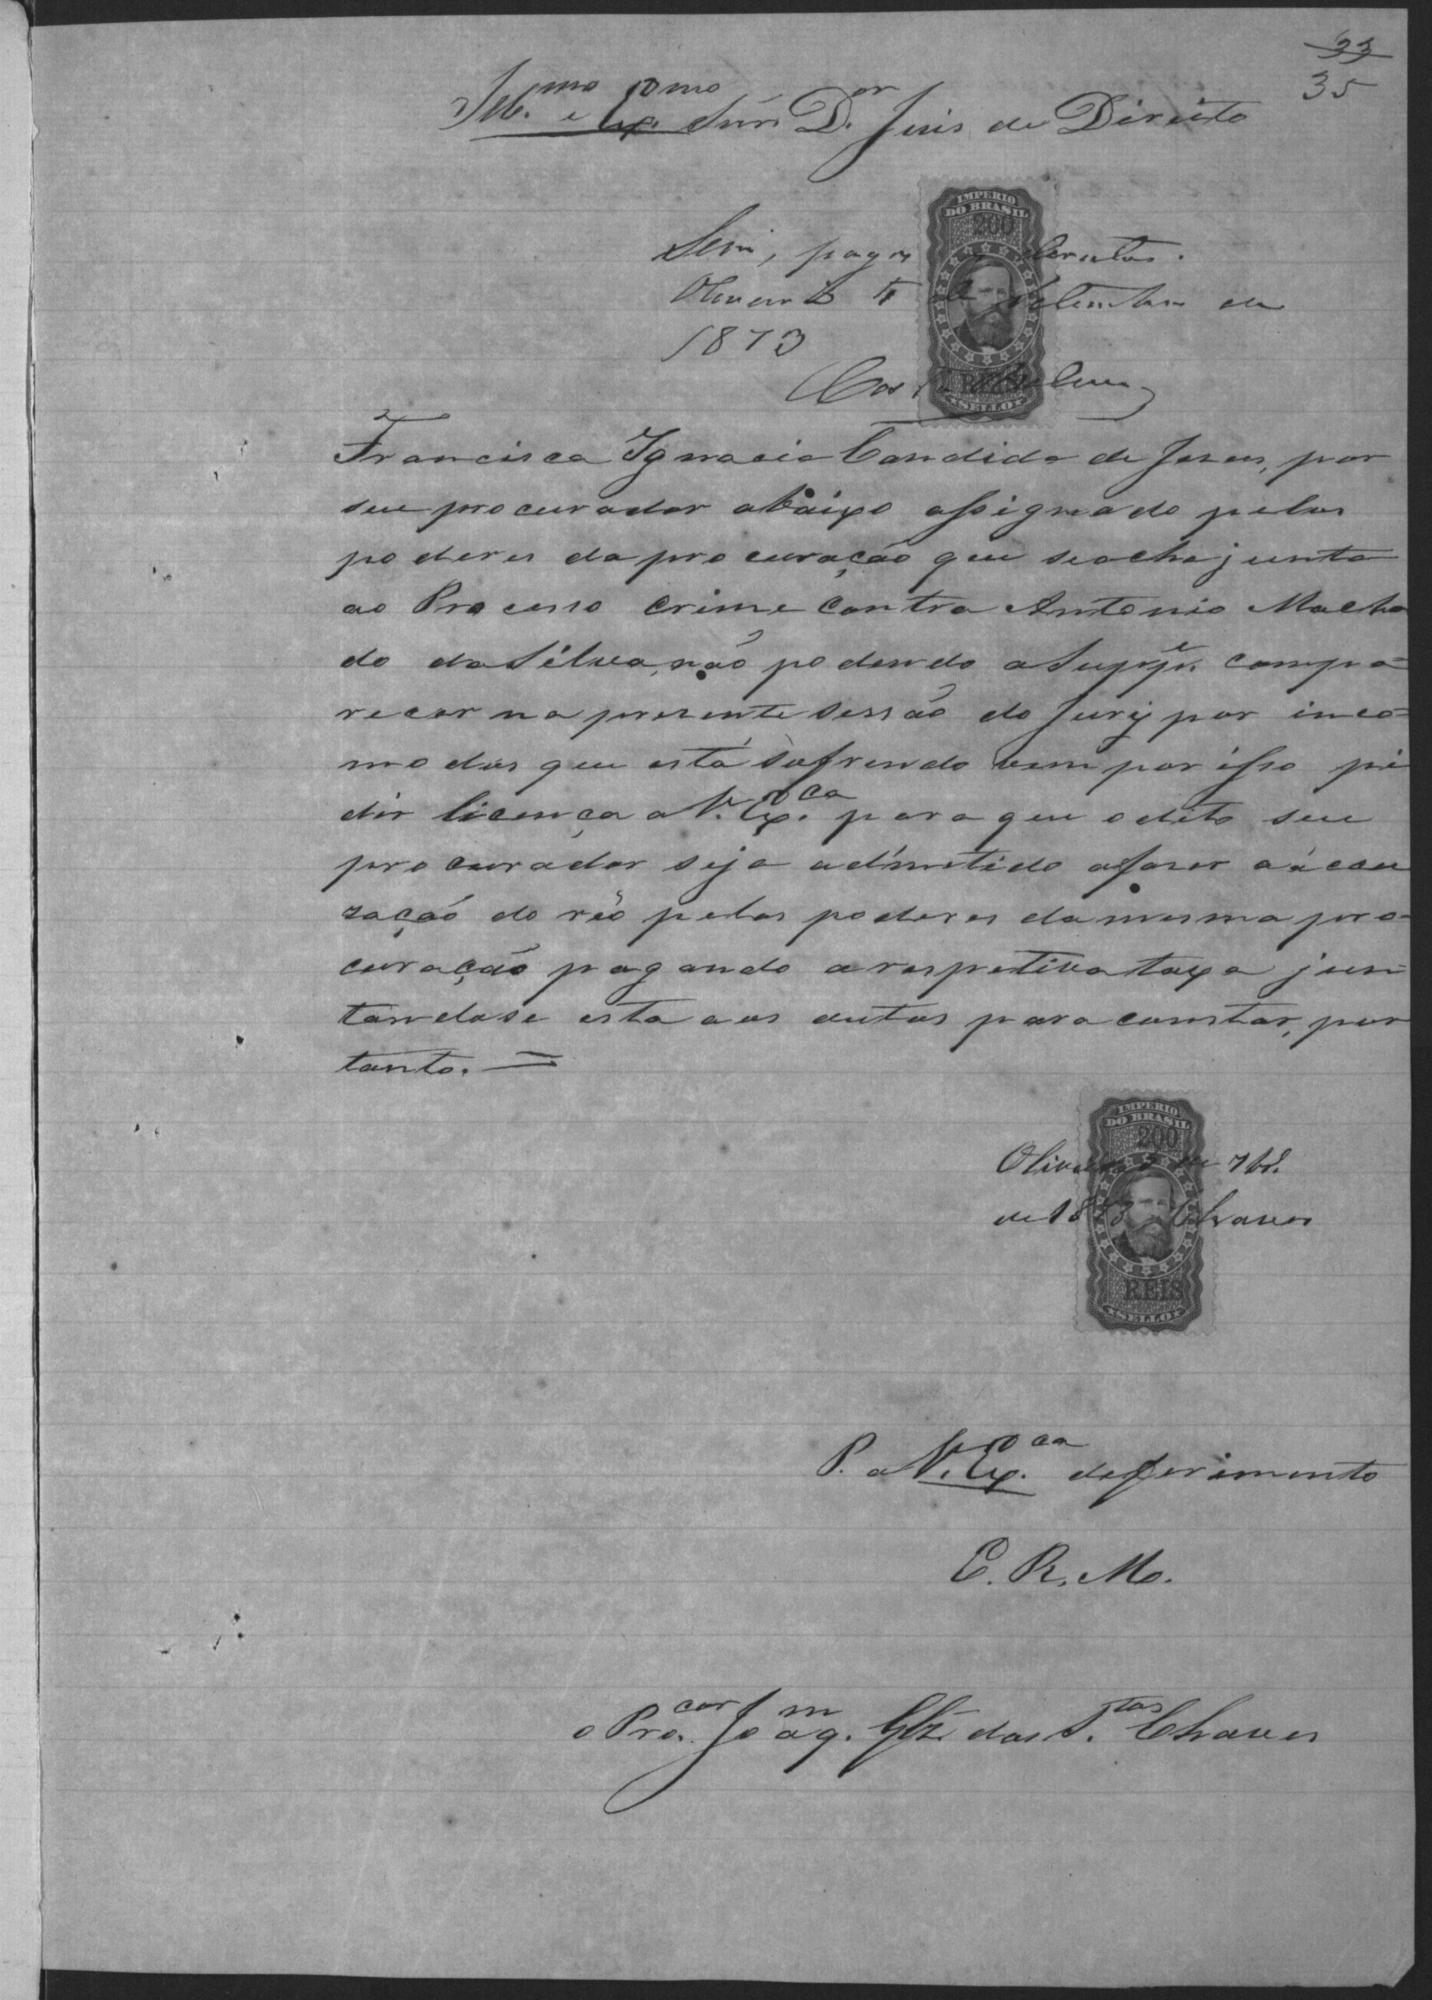 33
35
Ill.mo e Ex.mo Snr. D.or Juis de Direito
IMPERIO
DO BRASIL
200
Sim, pagos os direitos.
Oliveira 4 de Setembro de
1873
REIS
SELLO
Francisca Ignacia Candida de Jesus, por
seu procurador abaixo assignado pelos
poderes da procuração que se acha junta
ao Processo crime contra Antonio Macha
do da Silva, não podendo a Supp.e compa=
recer na presente sessão do Jury por inco=
modos que está sofrendo vem por isso pe
dir licença a V. Ex.ca para que o dito seu
procurador seja admetido afaser a accu
zação do réo pelos poderes da mesma pro=
curação pagando a respetiva taxa jun
tandose esta aos autos para constar, por
tanto. =
IMPERIO
DO BRASIL
200
Oliveira 3 de 7br.
de 1873 Chaves
REIS
SELLO
P. a V. Ex.ca deferimento
E. R. M.
o Pro.cor Joaq.m Glz das S.tas Chaves